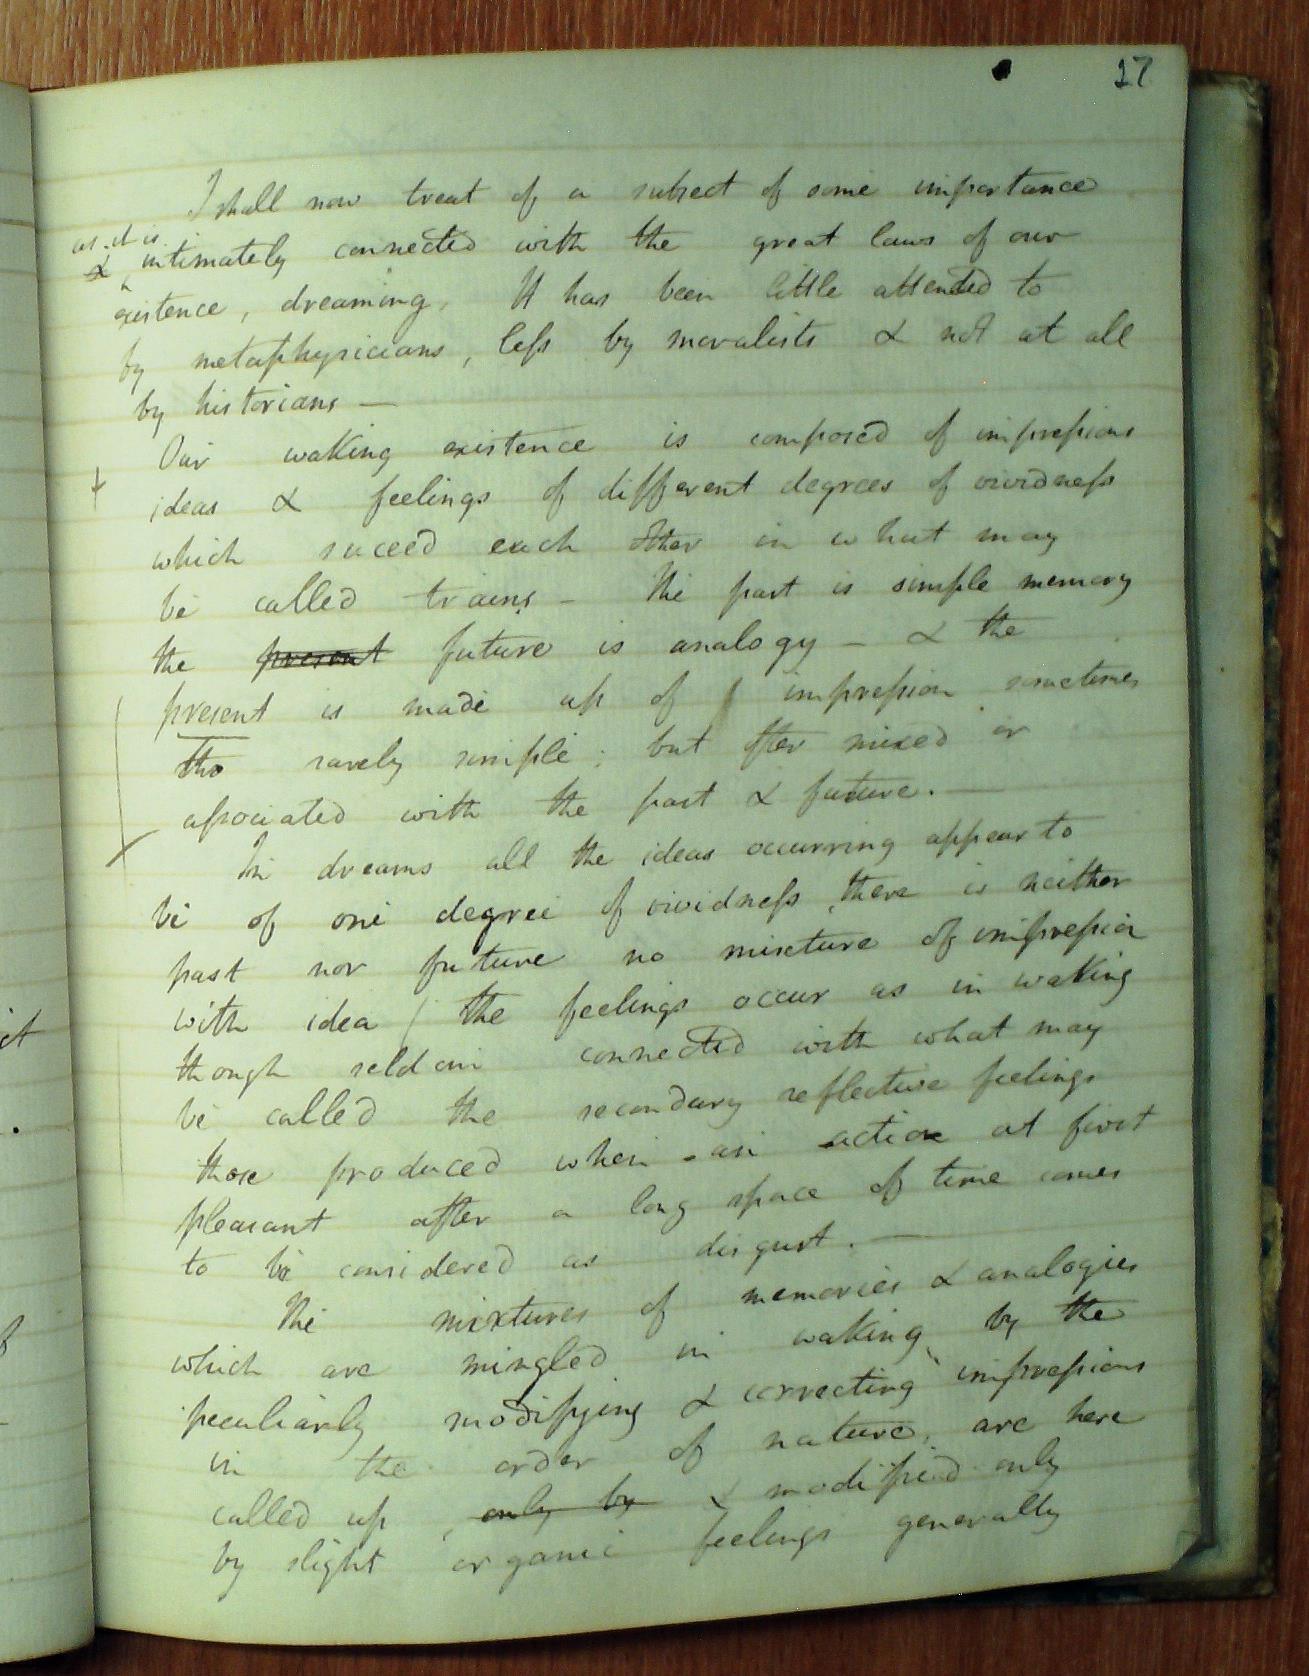 17
I shall now treat of a subject of some importance
as it is
& intimately connected with the great laws of our
existence, dreaming. It has been little attended to
by metaphysicians, less by moralists & not at all
by historians —
Our waking existence is composed of impressions
ideas & feelings of different degrees of vividness
which suceed each other in what may
be called trains – The past is simple memory
the present future is analogy – & the
present is made up of impression sometimes
tho rarely simple; but often mixed or
associated with the past & future. —
In dreams all the ideas occurring appear to
be of one degree of vividness, there is neither
past nor future no mixture of impression
with idea / the feelings occur as in waking
though seldom connected with what may
be called the secondary reflective feelings
those produced when an action at first
pleasant after a long space of time comes
to be considered as disgust. —
The mixtures of memories & analogies
which are mingled in waking, by the
peculiarly modifying & correcting impressions
in the order of nature, are here
called up, only by & modified only
by slight organic feelings generally
ct